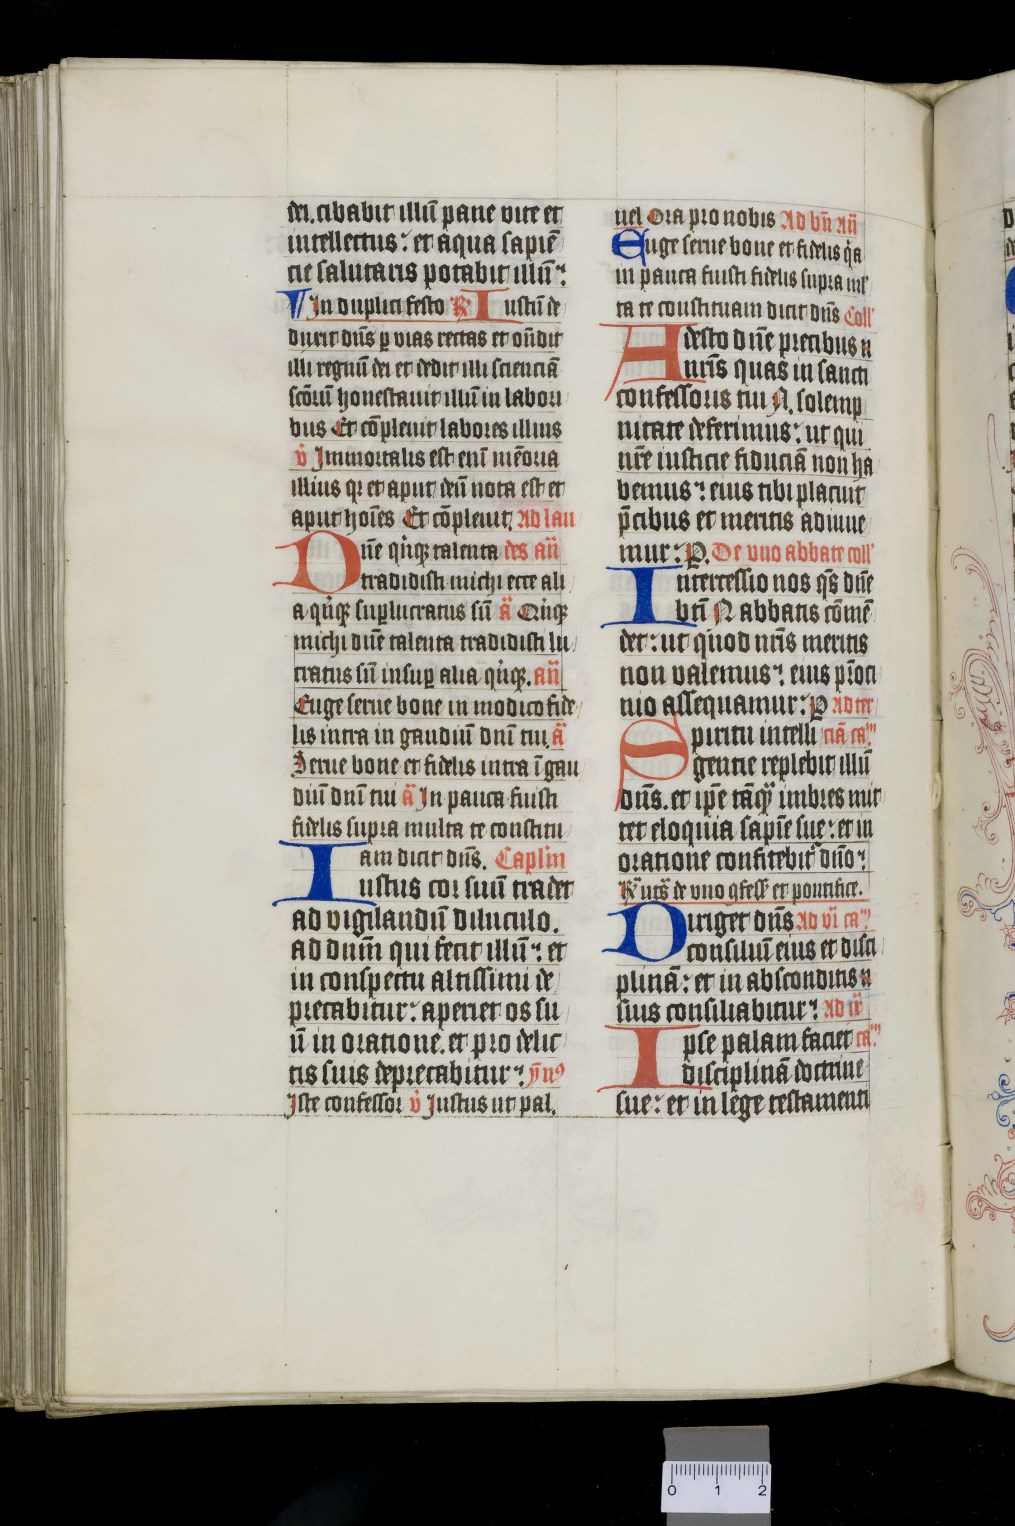 dei. cibabit illū pane vite et
intellectus: et aqua sapiē
cie salutaris potabit illū:
In duplici festo R Iustū de
duxit dn̄s p vias rectas et on̄dit
illi regnū dei et dedit illi scienciā
scōrū honestauit illū in labori
bus Et cōpleuit labores illius
v̄ Immortalis est enī mēoria
illius qr et aput deū nota est et
aput hoīes Et cōpleuit. Ad lau
Dn̄e qūqꝫ talenta des an̄
tradidisti michi ecce ali
a qūqꝫ suplucratus sū ā Qūqꝫ
michi dn̄e talenta tradidisti lu
cratus sū insup alia qūqꝫ. an̄
Euge serue bone in modico fide
lis intra in gaudiū dn̄i tui. ā
Serue bone et fidelis intra ī gau
diū dn̄i tui ā In pauca fuisti
fidelis supra multa te constitu
am dicit dn̄s. Caplm
Iustus cor suum tradet
ad vigilandū diluculo.
ad dn̄m qui fecit illū: et
in conspectu altissimi de
precabitur: aperiet os su
ū in oratione. et pro delic
tis suis deprecabitur: ȳnꝰ
Iste confessor v̄ Iustus ut pal.
uel Ora pro nobis Ad bn̄ an̄
Euge serue bone et fidelis q̄a
in pauca fuisti fidelis supra ml
ta te constituam dicit dn̄s Coll'
Adesto dn̄e precibus n
nr̄is quas in sancti
confessoris tui N. solemp
nitate deferimus: ut qui
nr̄e iusticie fiduciā non ha
bemus: eius tibi placuit
p̄cibus et meritis adiuue
mur: P. De vno abbate coll'
Intercessio nos qs̄ dn̄e
btī N abbatis cōmē
det: ut quod nr̄is meritis
non valemus: eius pr̄oci
nio assequamur: P Ad ter
Spiritu intelli ciā ca
gencie replebit illū
dn̄s. et ipē tāqꝫ imbres mit
tet eloquia sapiē sue: et in
oratione confitebit dn̄o:
R ut s de vno ꝯfess et pontifice.
Diriget dn̄s Ad vi ca
consiliū eius et disci
plinā: et in absconditis n
suis consiliabitur: Ad ix
Ipse palam faciet ca
disciplinā doctrine
sue: et in lege testamenti